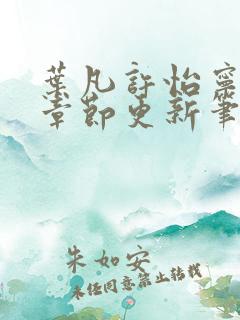 葉凡許怡寧
章節更新筆
朱如安
未经同意禁止转载